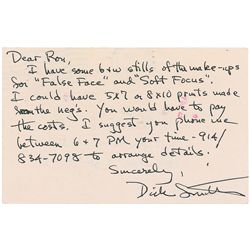 Dear Ron,
I have some b+w stills of the make-ups
for "False Face" and "Soft Focus".
I could have 5x7 or 8x10 prints made
from the neg's. You would have to pay
the costs. I suggest you phone me
between 6 + 7 PM your time - 914/
834-7098 to arrange details.
Sincerely,
Dick Smith